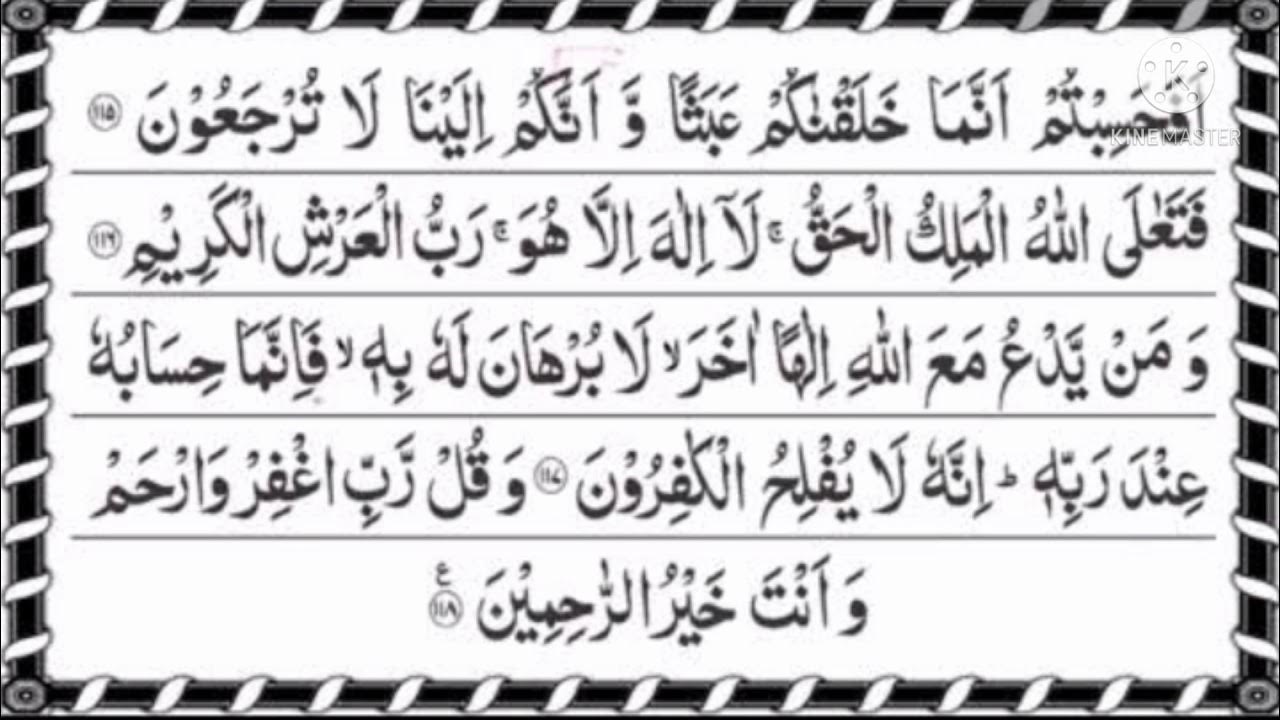 اَفَحَسِبْتُمْ اَنَّمَا خَلَقْنٰكُمْ عَبَثًا وَّ اَنَّكُمْ اِلَيْنَا لَا تُرْجَعُوْنَ ﴿۱۱۵﴾
فَتَعٰلَى اللّٰهُ الْمَلِكُ الْحَقُّ ۚ لَاۤ اِلٰهَ اِلَّا هُوَ ۚ رَبُّ الْعَرْشِ الْكَرِيْمِ ﴿۱۱۶﴾
وَ مَنْ يَّدْعُ مَعَ اللّٰهِ اِلٰهًا اٰخَرَ ۙ لَا بُرْهَانَ لَهٗ بِهٖ ۙ فَاِنَّمَا حِسَابُهٗ
عِنْدَ رَبِّهٖ ؕ اِنَّهٗ لَا يُفْلِحُ الْكٰفِرُوْنَ ﴿۱۱۷﴾ وَ قُلْ رَّبِّ اغْفِرْ وَارْحَمْ
وَ اَنْتَ خَيْرُ الرّٰحِمِيْنَ ﴿۱۱۸﴾ ع
K
KINEMASTER